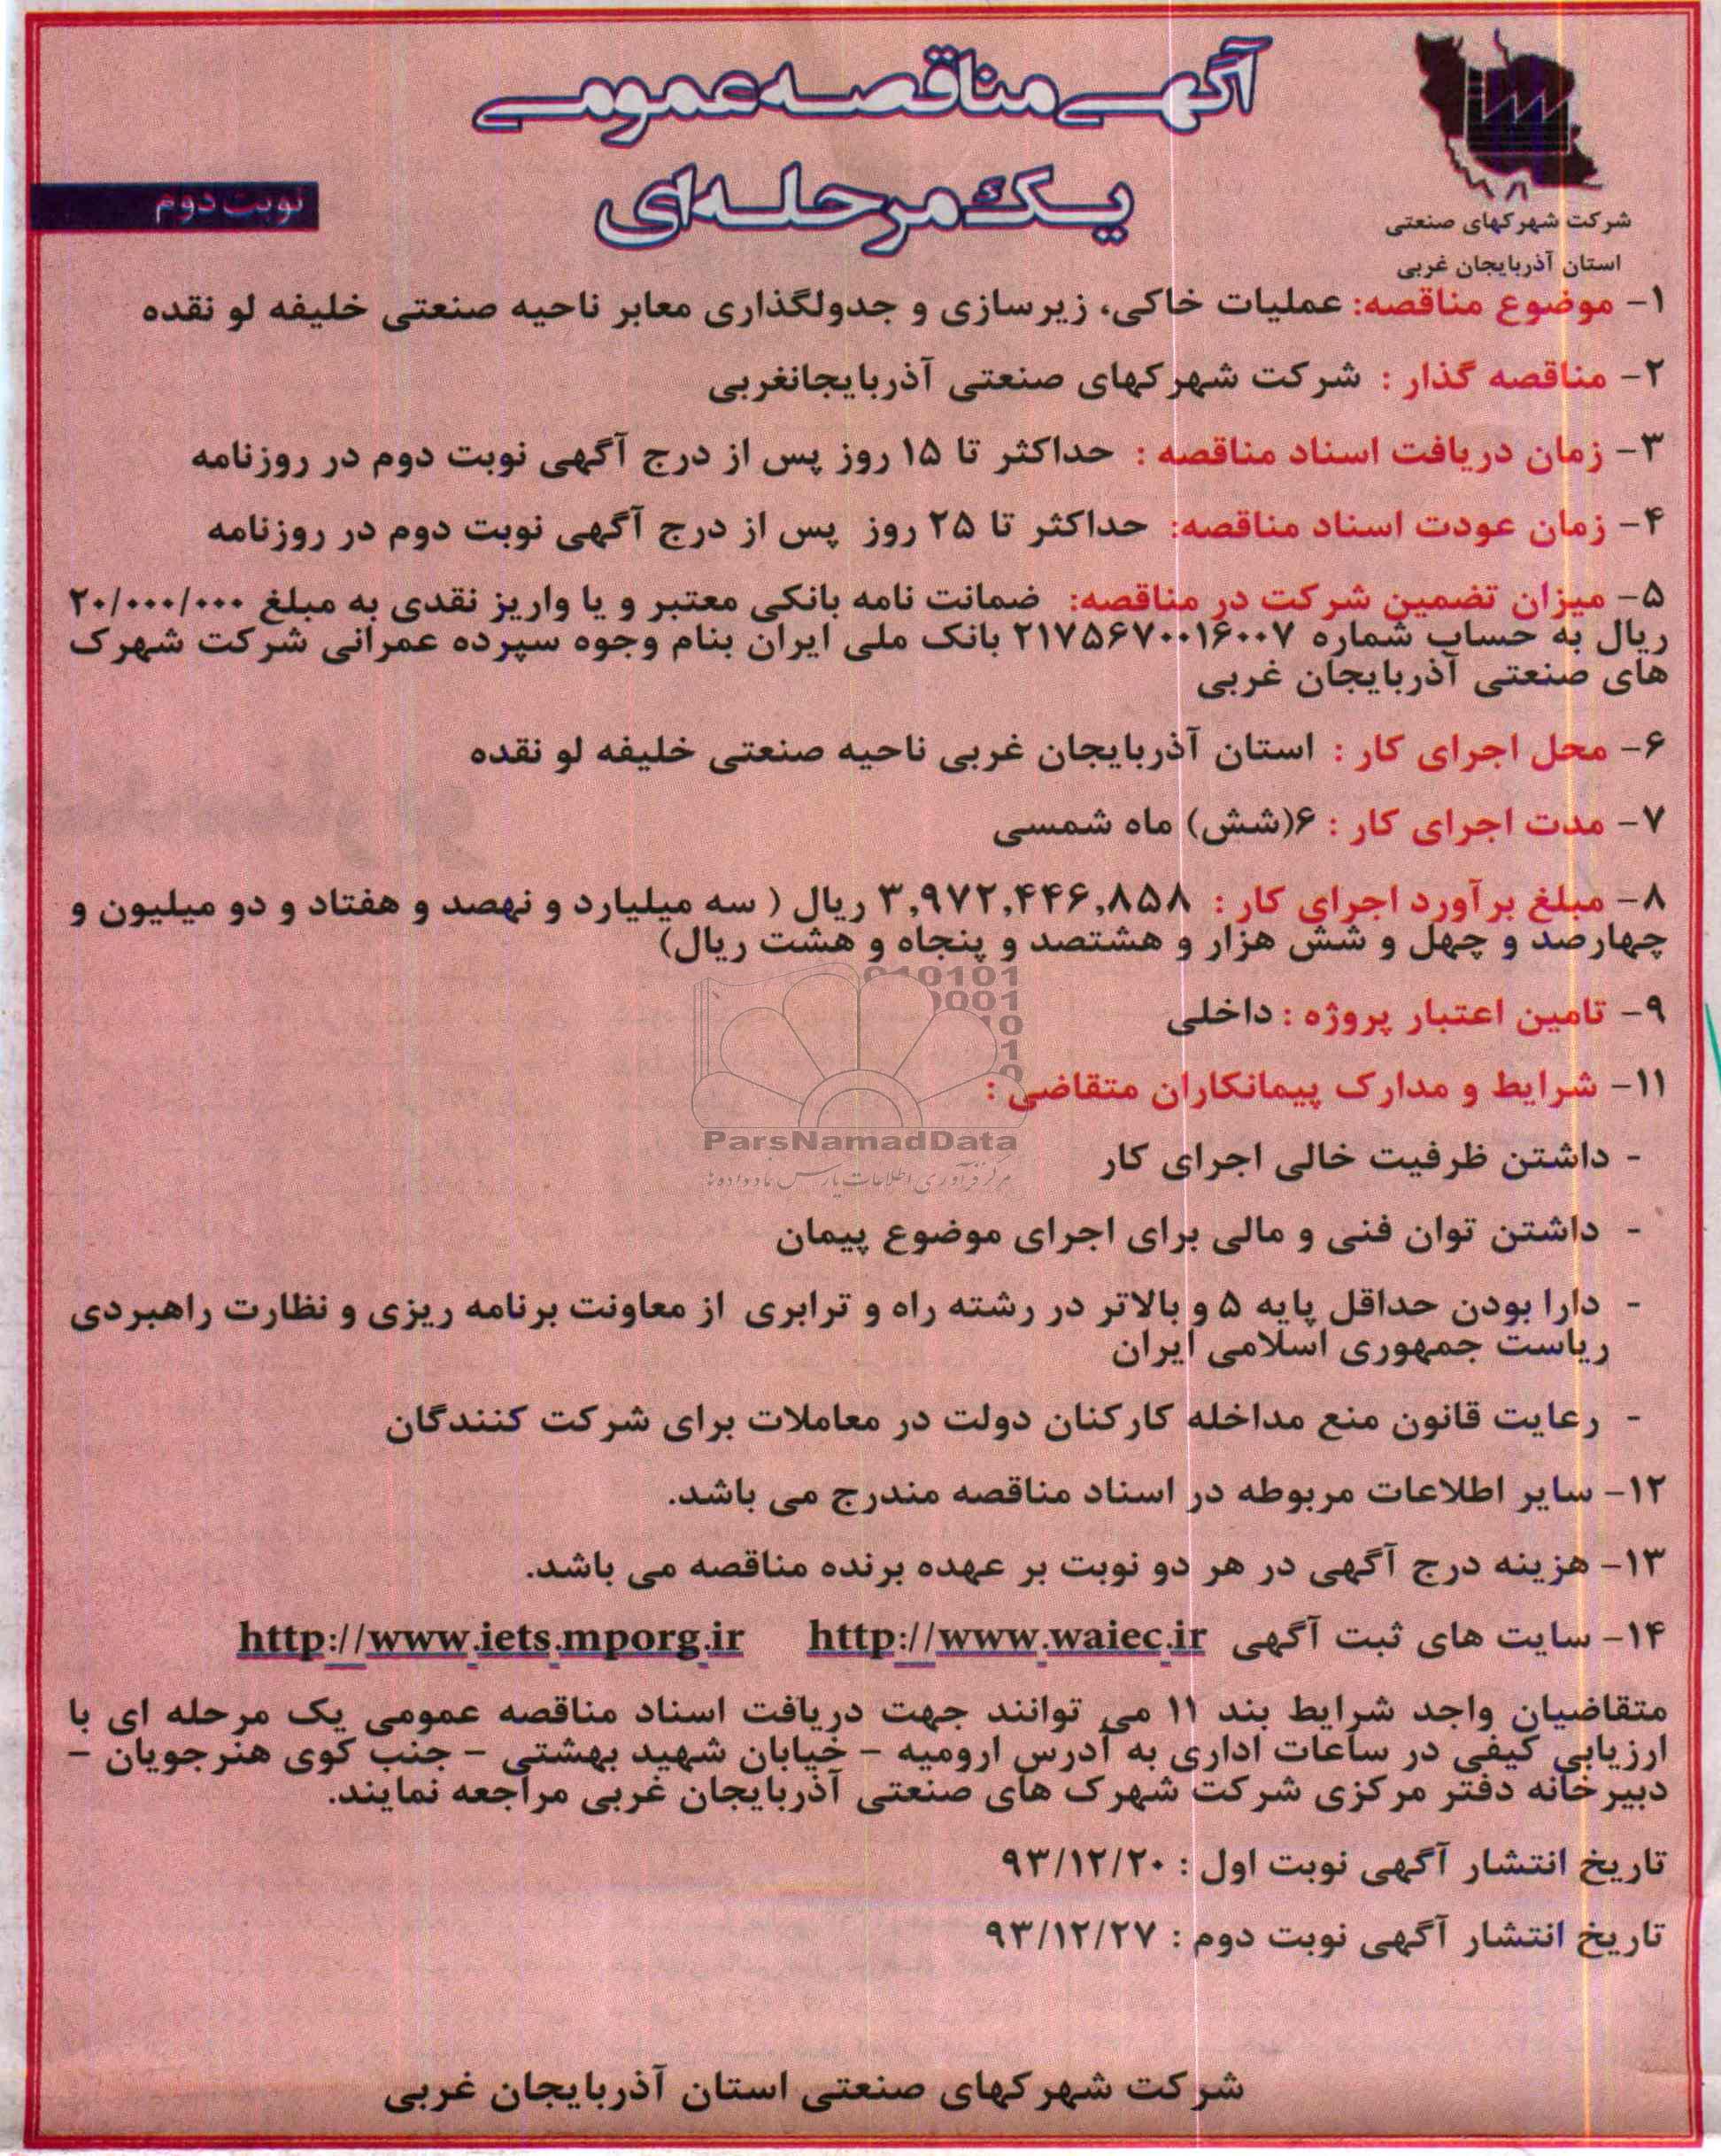 آگهی مناقصه عمومی
یک مرحله ای
نوبت دوم
شرکت شهرکهای صنعتی
استان آذربایجان غربی
۱- موضوع مناقصه: عملیات خاکی، زیرسازی و جدولگذاری معابر ناحیه صنعتی خلیفه لو نقده
۲- مناقصه گذار : شرکت شهرکهای صنعتی آذربایجانغربی
۳- زمان دریافت اسناد مناقصه : حداکثر تا ۱۵ روز پس از درج آگهی نوبت دوم در روزنامه
۴- زمان عودت اسناد مناقصه: حداکثر تا ۲۵ روز پس از درج آگهی نوبت دوم در روزنامه
۵- میزان تضمین شرکت در مناقصه: ضمانت نامه بانکی معتبر و یا واریز نقدی به مبلغ ۲۰/۰۰۰/۰۰۰
ریال به حساب شماره ۲۱۷۵۶۷۰۰۱۶۰۰۷ بانک ملی ایران بنام وجوه سپرده عمرانی شرکت شهرک
های صنعتی آذربایجان غربی
۶- محل اجرای کار : استان آذربایجان غربی ناحیه صنعتی خلیفه لو نقده
۷- مدت اجرای کار : ۶(شش) ماه شمسی
۸- مبلغ برآورد اجرای کار : ۳,۹۷۲,۴۴۶,۸۵۸ ریال ( سه میلیارد و نهصد و هفتاد و دو میلیون و
چهارصد و چهل و شش هزار و هشتصد و پنجاه و هشت ریال)
۹- تامین اعتبار پروژه : داخلی
۱۱- شرایط و مدارک پیمانکاران متقاضی :
ParsNamadData
مرکز فرآوری اطلاعات پارس نماد داده ها
- داشتن ظرفیت خالی اجرای کار
- داشتن توان فنی و مالی برای اجرای موضوع پیمان
- دارا بودن حداقل پایه ۵ و بالاتر در رشته راه و ترابری از معاونت برنامه ریزی و نظارت راهبردی
ریاست جمهوری اسلامی ایران
- رعایت قانون منع مداخله کارکنان دولت در معاملات برای شرکت کنندگان
۱۲- سایر اطلاعات مربوطه در اسناد مناقصه مندرج می باشد.
۱۳- هزینه درج آگهی در هر دو نوبت بر عهده برنده مناقصه می باشد.
۱۴- سایت های ثبت آگهی http://www.waiec.ir http://www.iets.mporg.ir
متقاضیان واجد شرایط بند ۱۱ می توانند جهت دریافت اسناد مناقصه عمومی یک مرحله ای با
ارزیابی کیفی در ساعات اداری به آدرس ارومیه - خیابان شهید بهشتی - جنب کوی هنرجویان -
دبیرخانه دفتر مرکزی شرکت شهرک های صنعتی آذربایجان غربی مراجعه نمایند.
تاریخ انتشار آگهی نوبت اول : ۹۳/۱۲/۲۰
تاریخ انتشار آگهی نوبت دوم : ۹۳/۱۲/۲۷
شرکت شهرکهای صنعتی استان آذربایجان غربی